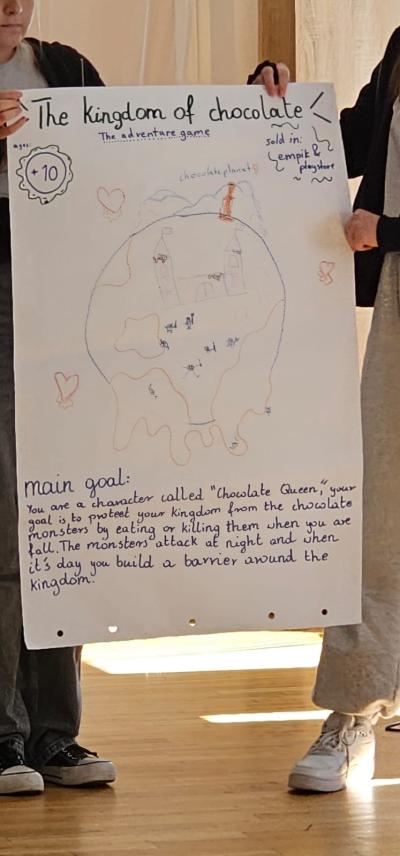 The kingdom of chocolate
The adventure game
ages:
+10
sold in:
empik &
playstore
chocolate planet
main goal:
You are a character called "Chocolate Queen," your
goal is to protect your kingdom from the chocolate
monsters by eating or killing them when you are
full. The monsters attack at night and when
it's day you build a barrier around the
kingdom.